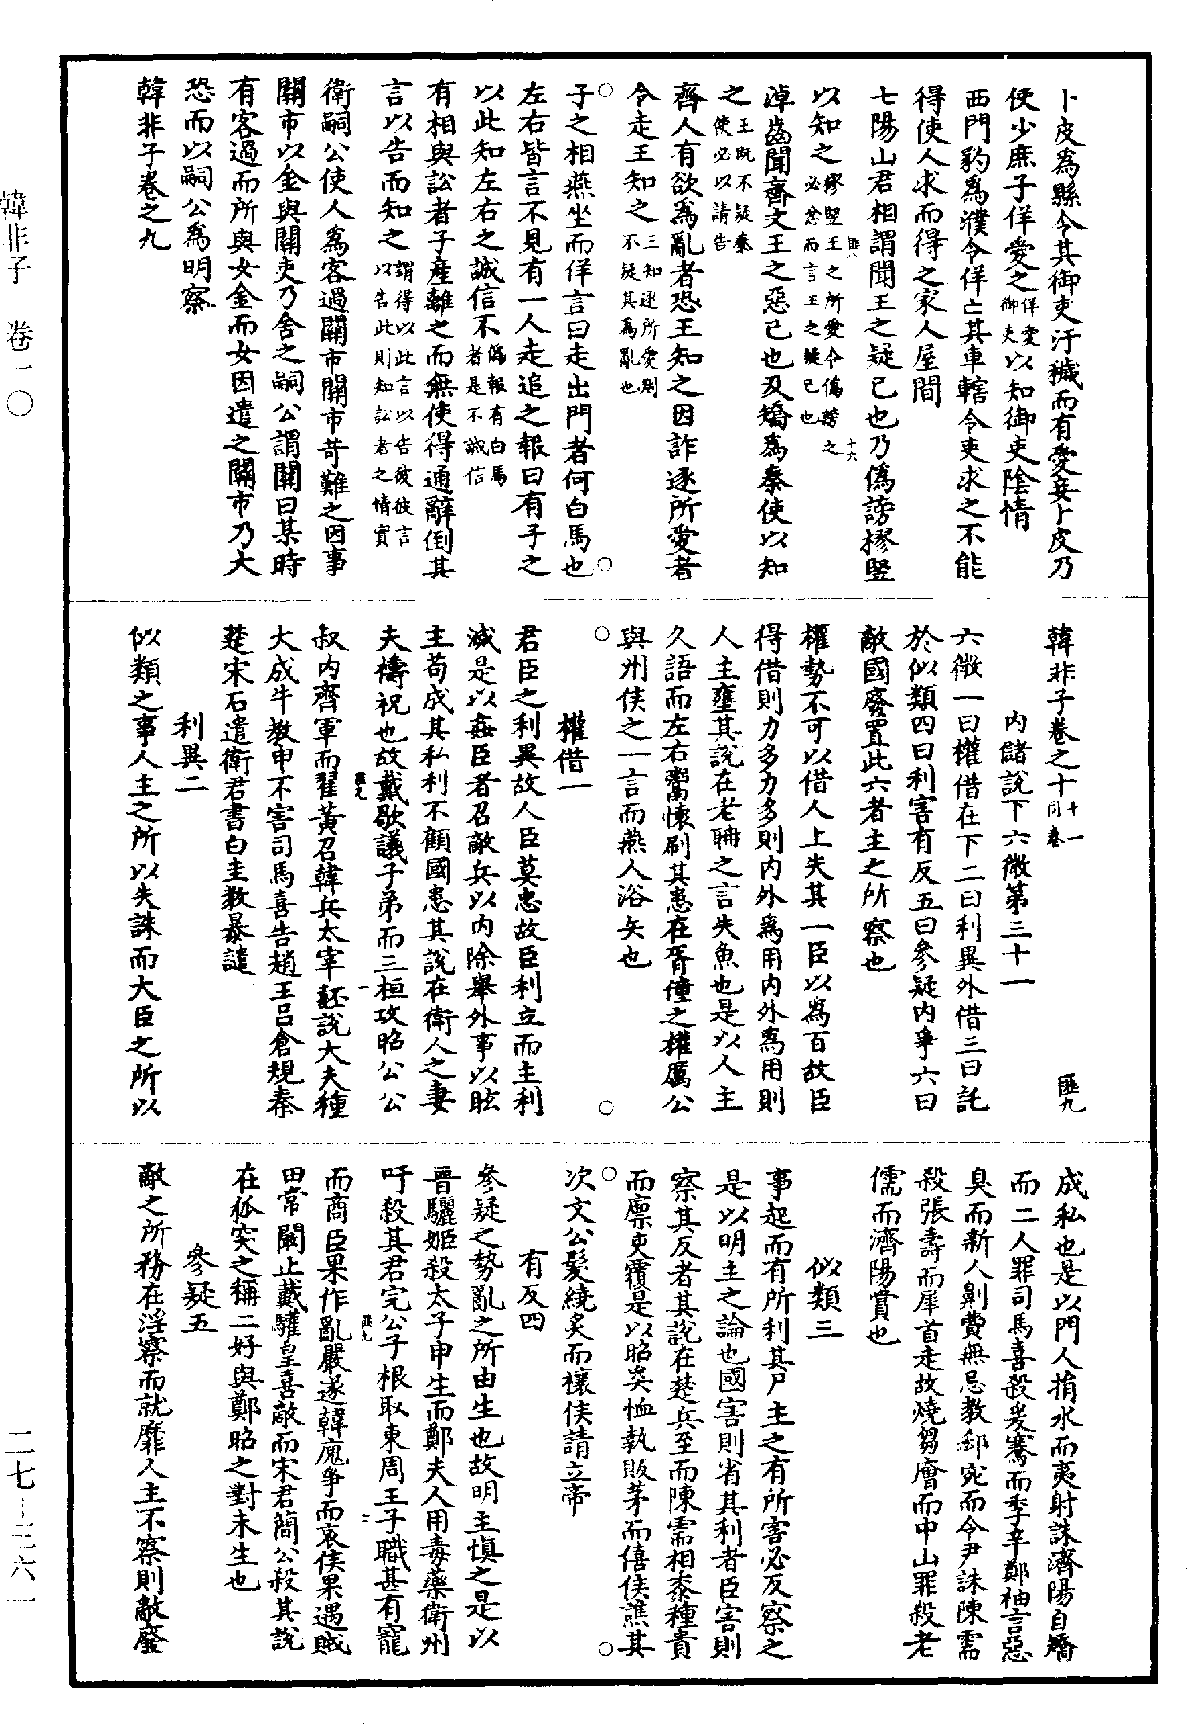 卜皮爲縣令其御吏汙穢而有愛妾卜皮乃
使少庶子佯愛之佯愛御史以知御吏陰情
西門豹爲濮令佯亡其車轄令吏求之不能
得使人求而得之家人屋間
七陽山君相謂聞王之疑己也乃僞謗樛豎
以知之樛豎王之所愛令僞謗之必忿而言王之疑己也
淖齒聞齊文王之惡己也乃矯爲秦使以知
之王既不疑秦使必以請告
齊人有欲爲亂者恐王知之因詐逐所愛者
令走王知之三知逐所愛則不疑其爲亂也
子之相燕坐而佯言曰走出門者何白馬也
左右皆言不見有一人走追之報曰有子之
以此知左右之誠信不僞報有白馬者是不誠信
有相與訟者子產離之而無使得通辭倒其
言以告而知之謂得以此言以告彼彼言以告此則知訟者之情實
衛嗣公使人爲客過關市關市苛難之因事
關市以金與關吏乃舍之嗣公謂關曰某時
有客過而所與女金而女因遣之關市乃大
恐而以嗣公爲明察
韓非子卷之九
韓非子卷之十十一同卷
匪九
内儲說下六微第三十一
六微一曰權借在下二曰利異外借三曰託
於似類四曰利害有反五曰參疑内爭六曰
敵國廢置此六者主之所察也
權勢不可以借人上失其一臣以爲百故臣
得借則力多力多則内外爲用内外爲用則
人主壅其說在老聃之言失魚也是以人主
久語而左右鬻懷刷其患在胥僮之權厲公
與州侯之一言而燕人浴矢也
權借一
君臣之利異故人臣莫忠故臣利立而主利
滅是以姦臣者召敵兵以内除舉外事以眩
主苟成其私利不顧國患其說在衛人之妻
夫禱祝也故戴歇議子弟而三桓攻昭公公
叔内齊軍而翟黄召韓兵太宰嚭說大夫種
大成牛教申不害司馬喜告趙王吕倉規秦
楚宋石遺衛君書白圭教暴譴
利異二
似類之事人主之所以失誅而大臣之所以
成私也是以門人捐水而夷射誅濟陽自矯
而二人罪司馬喜殺爰騫而季辛鄭袖言惡
臭而新人劓費無忌教郄宛而令尹誅陳需
殺張壽而犀首走故燒芻廥而中山罪殺老
儒而濟陽賞也
似類三
事起而有所利其尸主之有所害必反察之
是以明主之論也國害則省其利者臣害則
察其反者其說在楚兵至而陳需相黍種貴
而廩吏覆是以昭奚恤執販茅而僖侯譙其
次文公髮繞炙而穰侯請立帝
有反四
參疑之勢亂之所由生也故明主慎之是以
晉驪姬殺太子申生而鄭夫人用毒藥衛州
吁殺其君完公子根取東周王子職甚有寵
而商臣果作亂嚴遂韓廆爭而哀侯果遇賊
田常闞止戴驩皇喜敵而宋君簡公殺其說
在狐突之稱二好與鄭昭之對未生也
參疑五
敵之所務在淫察而就靡人主不察則敵廢
韓非子 卷一〇
二七—三六一